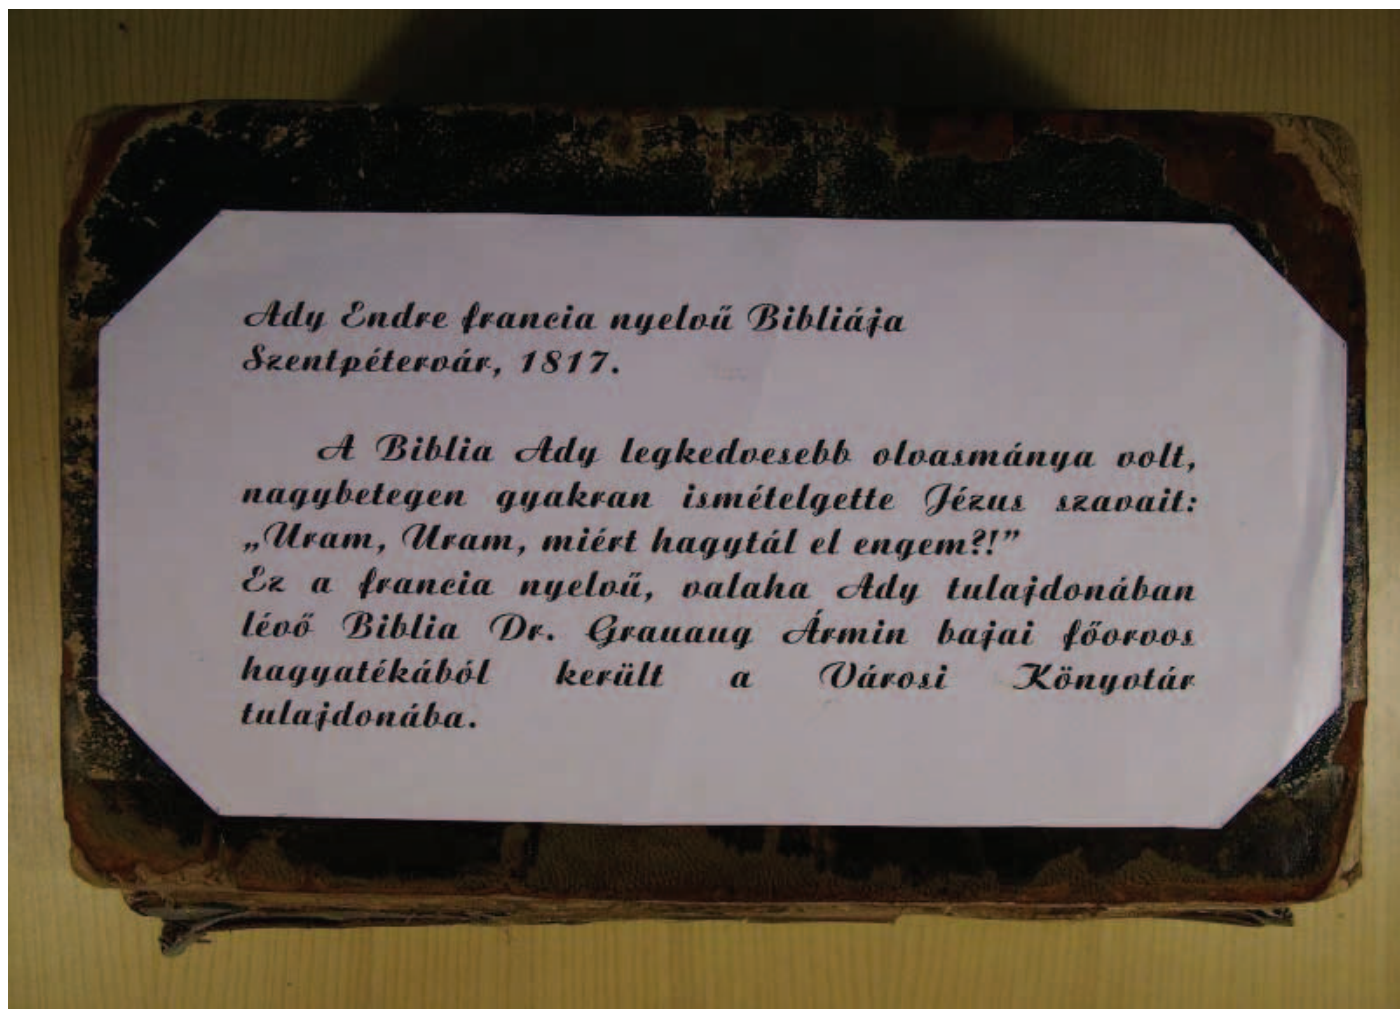 Ady Endre francia nyelvű Bibliája
Szentpétervár, 1817.
A Biblia Ady legkedvesebb olvasmánya volt,
nagybetegen gyakran ismételgette Jézus szavait:
„Uram, Uram, miért hagytál el engem?!”
Ez a francia nyelvű, valaha Ady tulajdonában
lévő Biblia Dr. Grauaug Ármin bajai főorvos
hagyatékából került a Városi Könyvtár
tulajdonába.